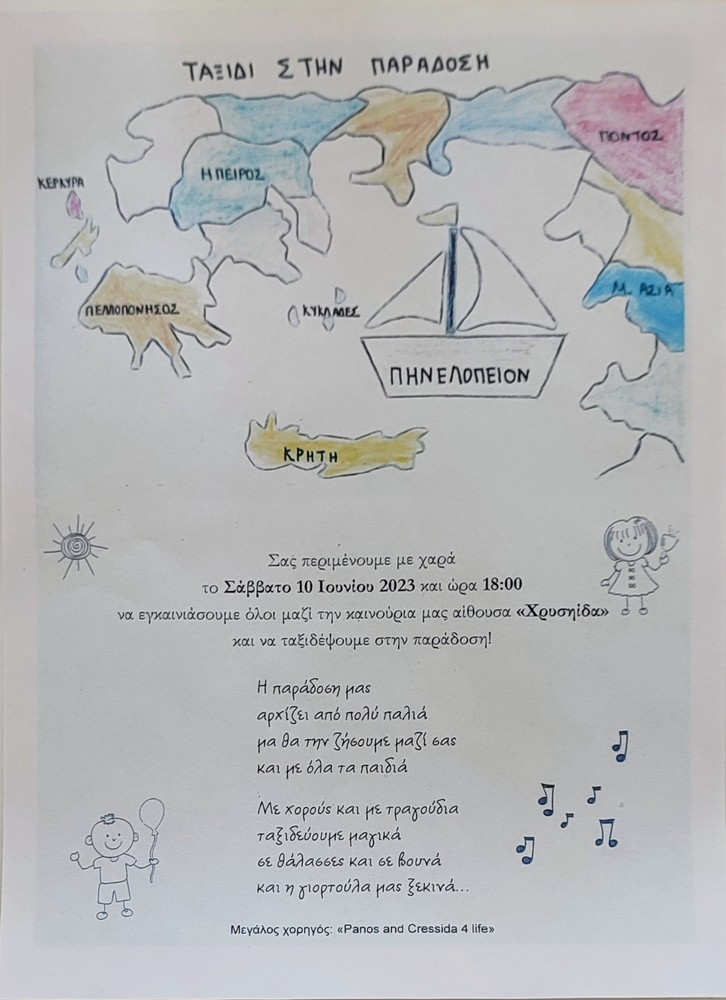 ΤΑΞΙΔΙ ΣΤΗΝ ΠΑΡΑΔΟΣΗ
ΠΟΝΤΟΣ
ΗΠΕΙΡΟΣ
ΚΕΡΚΥΡΑ
Μ. ΑΣΙΑ
ΠΕΛΛΟΠΟΝΗΣΟΣ
ΚΥΚΛΑΔΕΣ
ΠΗΝΕΛΟΠΕΙΟΝ
ΚΡΗΤΗ
Σας περιμένουμε με χαρά
το Σάββατο 10 Ιουνίου 2023 και ώρα 18:00
να εγκαινιάσουμε όλοι μαζί την καινούρια μας αίθουσα «Χρυσηίδα»
και να ταξιδέψουμε στην παράδοση!
Η παράδοση μας
αρχίζει από πολύ παλιά
μα θα την ζήσουμε μαζί σας
και με όλα τα παιδιά
Με χορούς και με τραγούδια
ταξιδεύουμε μαγικά
σε θάλασσες και σε βουνά
και η γιορτούλα μας ξεκινά...
Μεγάλος χορηγός: «Panos and Cressida 4 life»